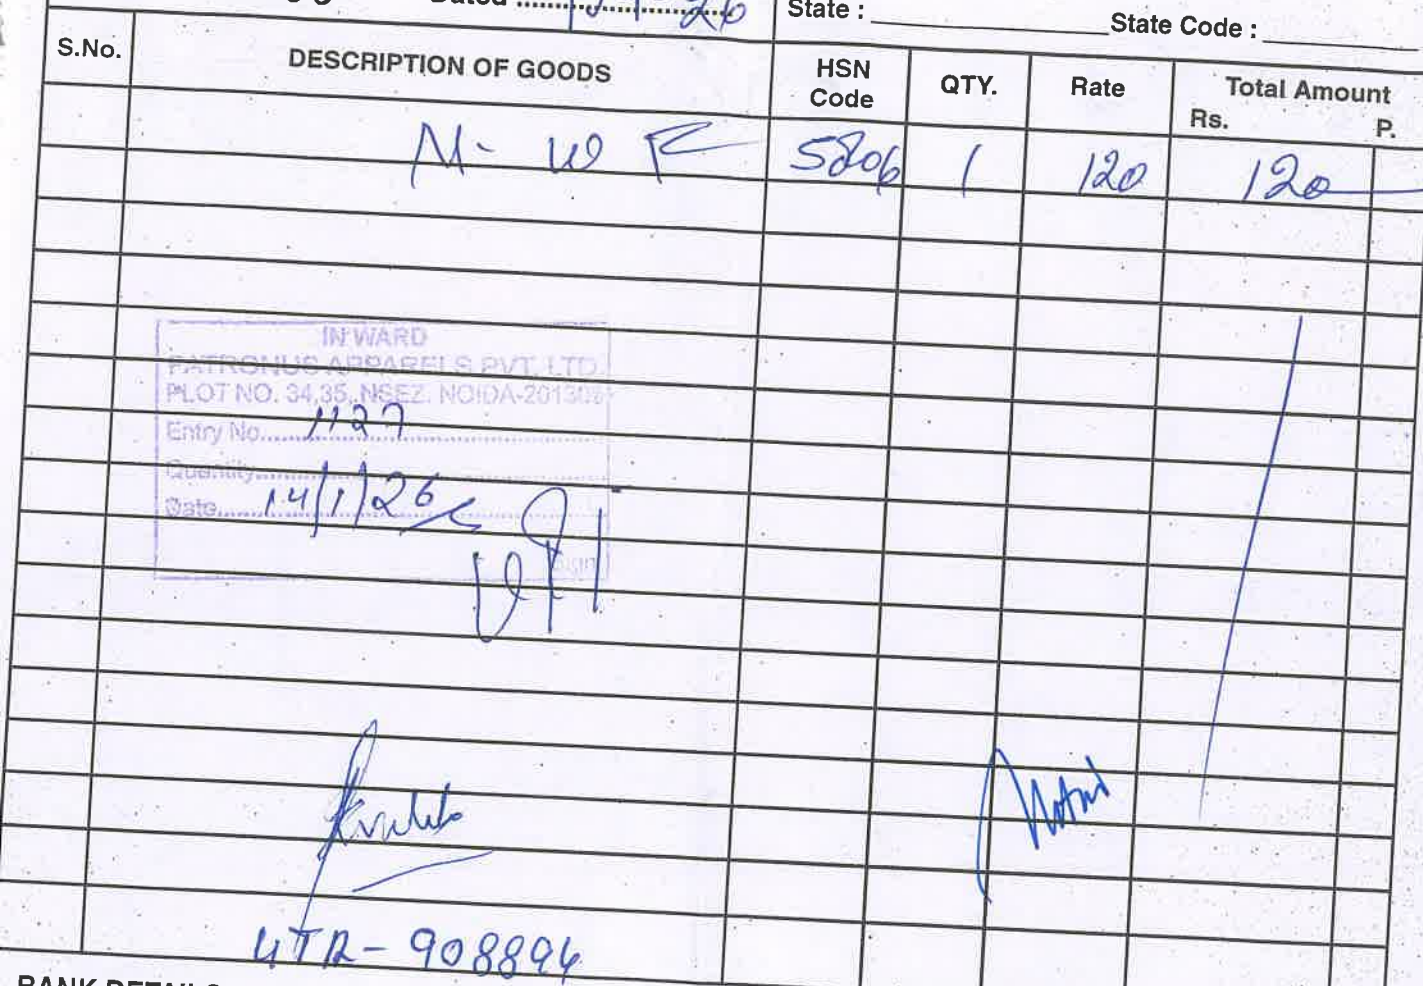 Dated
State : State Code :
S.No. DESCRIPTION OF GOODS HSN Code QTY. Rate Total Amount Rs. P.
5806 1 120 120
IN WARD
PATRONUS APPARELS PVT. LTD.
PLOT NO. 34,35, NSEZ. NOIDA-201305
Entry No. 1127
Quantity
Date 14/1/26
Sign
UTR - 908894
BANK DETAILS